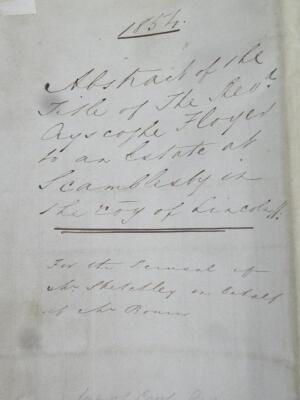 1854.
Abstract of the
Title of The Revd.
Ayscoghe Floyer
to an Estate at
Scamblesby in
the Coy of Lincoln
For the Perusal of
Mr on behalf
of Mr